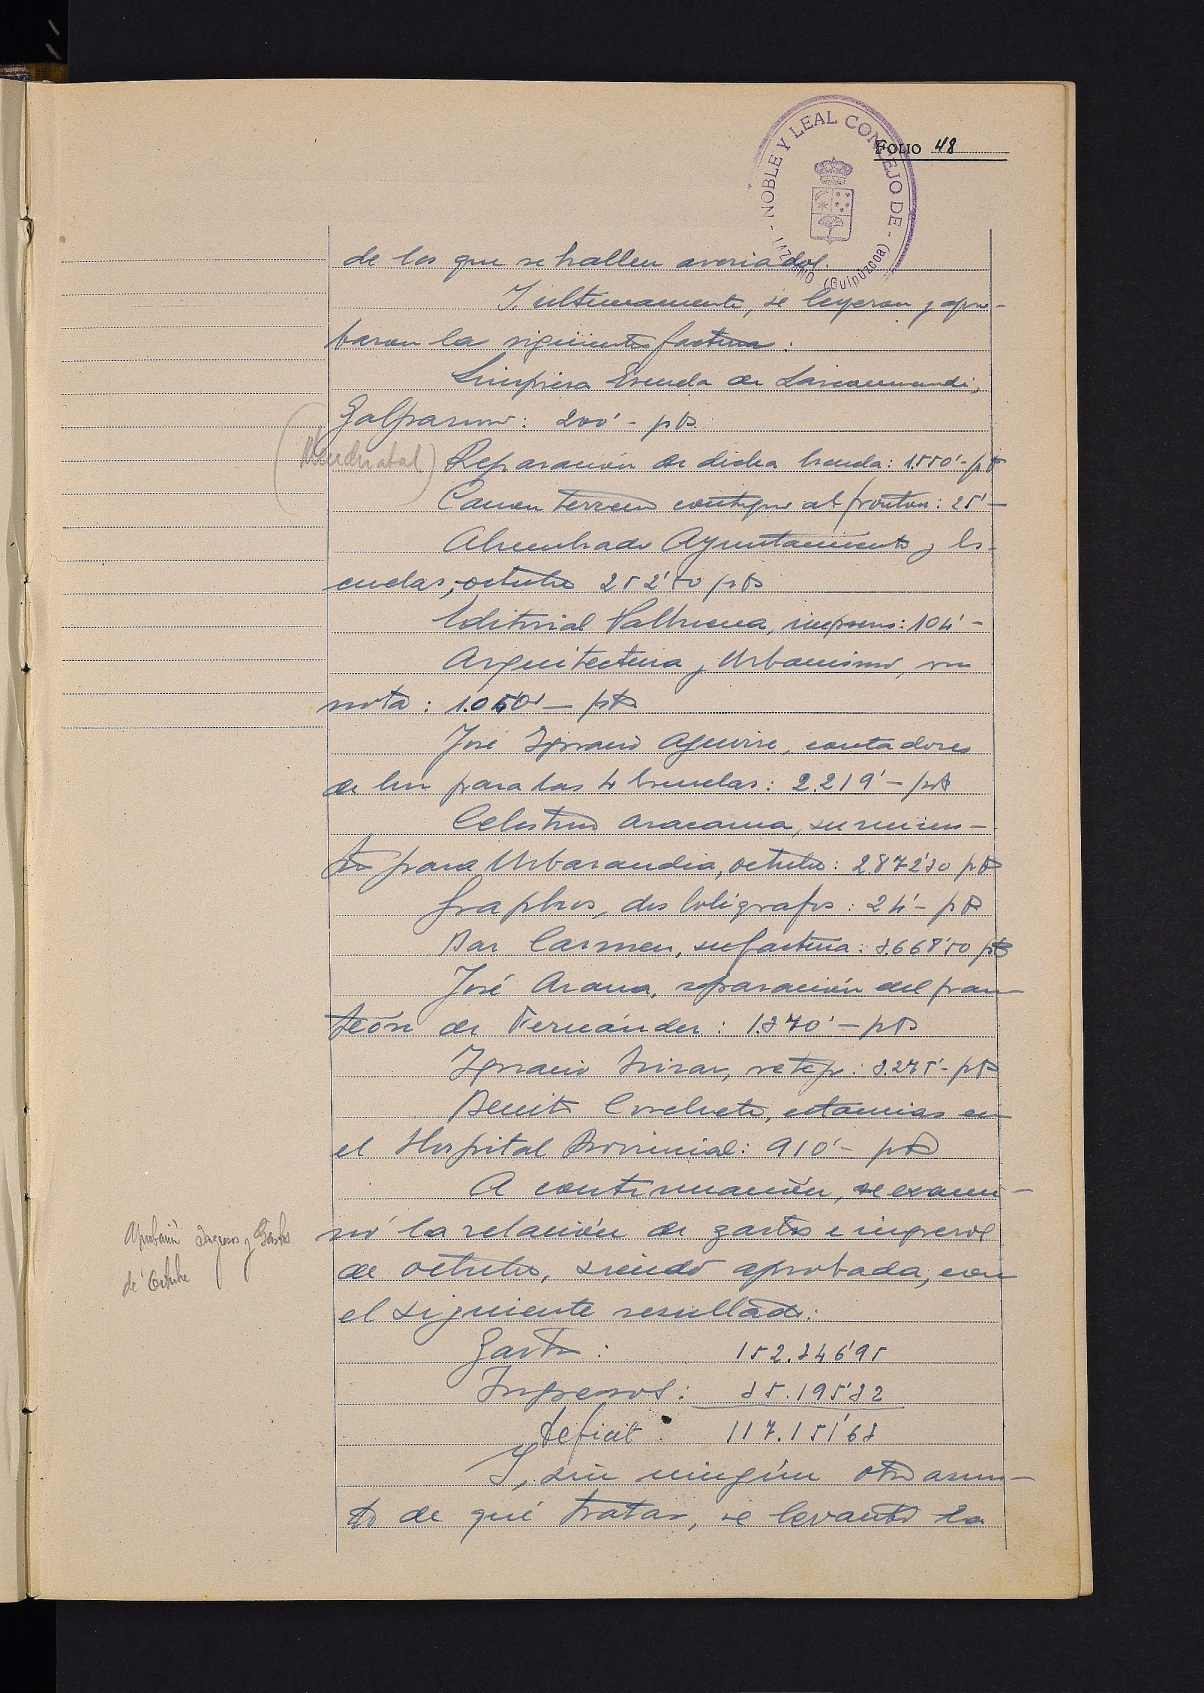 FOLIO 48
NOBLE Y LEAL CONCEJO DE LAZCANO (Guipúzcoa)
de los que se hallen averiados.
Y ultimamente, se leyeron y apro-
baron la siguientes facturas:
Limpieza Escuela de Lazcanomendi,
Galparsoro: 200'- pts
Reparación de dicha Escuela: 1.550'- pts
Canon terreno contiguo al frontón: 25'-
Alumbrado Ayuntamiento y Es-
cuelas, octubre 252'50 pts
Editorial Valbuena, impresos: 104'-
Arquitectura y Urbanismo, su
nota: 1.050'- pts
José Ignacio Aguirre, contadores
de luz para las 4 Escuelas: 2.219'- pts
Celestino Aracama, suminis-
tro para Urbarandia, octubre: 2.872'30 pts
Graphos, dos bolígrafos: 24'- pts
Bar Carmen, su factura: 3.668'50 pts
José Arana, reparación del pan-
teón de Fernández: 1.370'- pts
Ignacio Irizar, retejo: 3.275'- pts
Benito Corchete, estancias en
el Hospital Provincial: 910'- pts
A continuación, se exami-
nó la relación de gastos e ingresos
de octubre, siendo aprobada, con
el siguiente resultado:
Gastos: 152.346'95
Ingresos: 35.195'32
deficit: 117.151'63
Y, sin ningún otro asun-
to de qué tratar, se levantó la
Aprobación Ingresos y Gastos
de Octubre